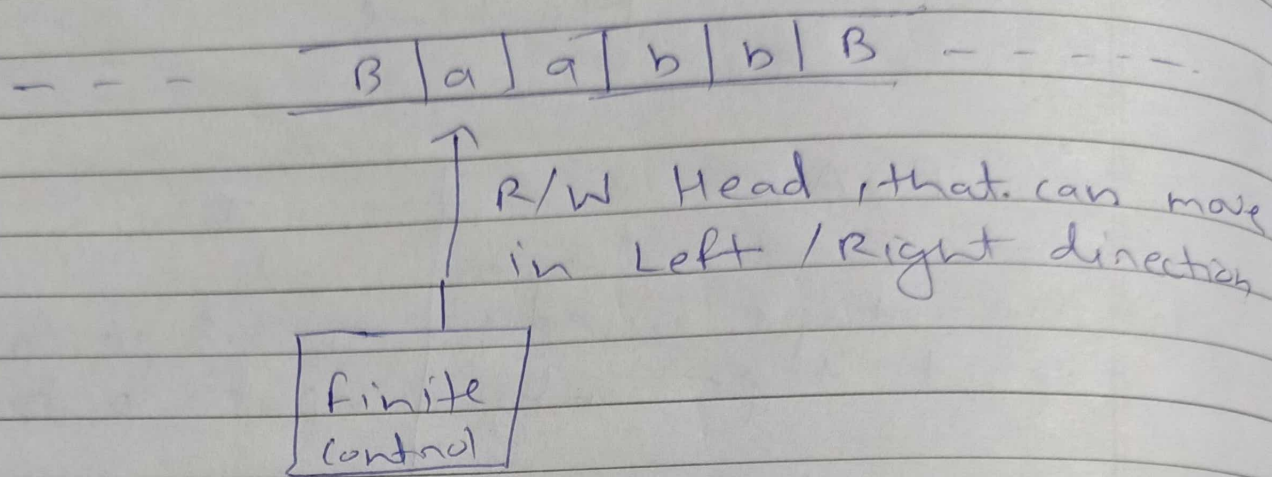 --- B | a | a | b | b | B -----.
R/W Head, that can move
in Left / Right direction
finite
control